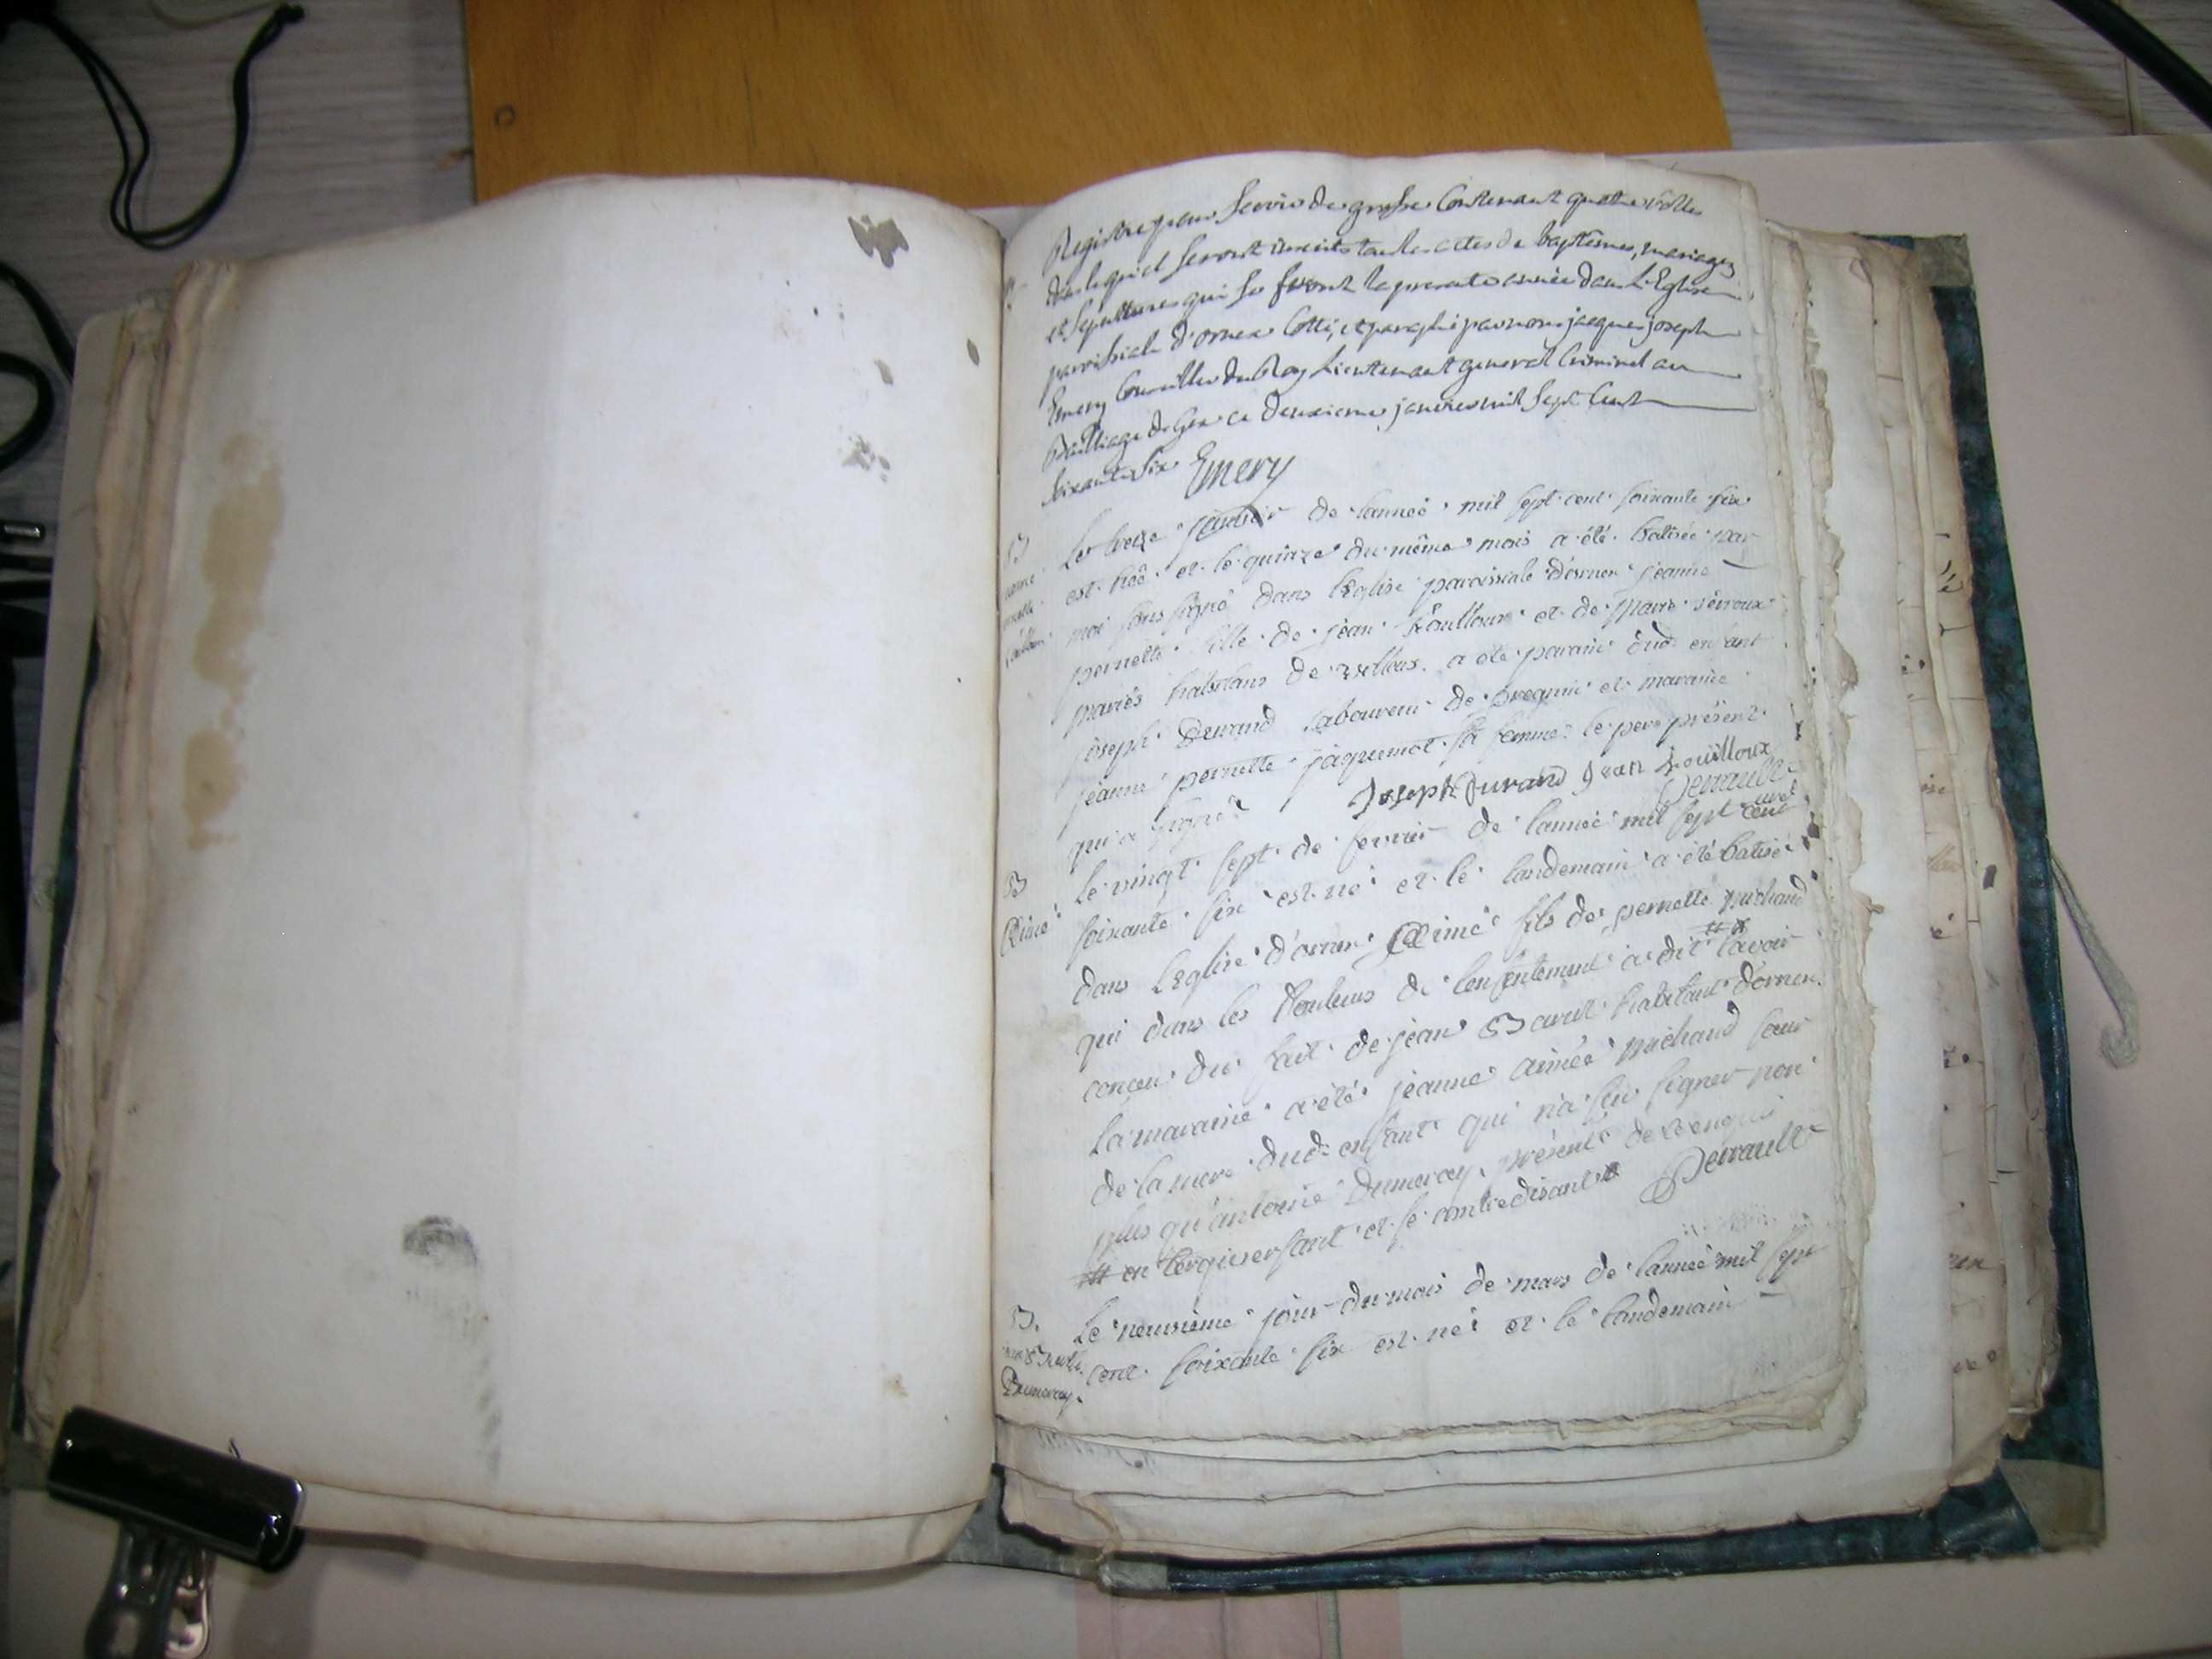 Registre pour servir de grosse contenant quatre rolles
dans lequel seront inscrits tous les actes de baptêmes, mariages
et sepultures qui se feront la presente année dans L'Eglise
paroissiale d'ornex Cotté, et paraphé par nous jacques joseph
Emery Conseiller du Roy Lieutenant general Criminel au
Bailliage de Gex ce deuxieme janvier mil sept Cent
soixante six Emery
B
Le treize janvier de l'année mil sept cent soixante six
est née et le quinze du même mois a été batisée par
moi sous signé dans l'Eglise paroissiale d'ornex jeanne
pernette fille de jean fouilloux et de marie
mariés habitans de a été parain dud. enfant
joseph Durand laboureur de pregnin et maraine
jeanne pernette jaquemot sa femme le pere présent
qui a signé Joseph Durand Jean fouilloux
Perrault curé
B
Aimé
Le vingt sept de fevrier de l'année mil sept cent
soixante six est né et le landemain a été batisé
dans l'Eglise d'ornex Aimé fils de pernette michaud
qui dans les douleurs de l'enfantement a dit # l'avoir
conceu du fait de jean habitant d'ornex
la maraine a été jeanne aimée michaud seur
de la mere dud. enfant qui n'a seu signer non
plus qu'antoine Dumarcey présent de
# en tergiversant et se contredisant Perrault
B.
Dumarcey.
Le neuvième jour du mois de mars de l'année mil sept
cent soixante six est né et le landemain